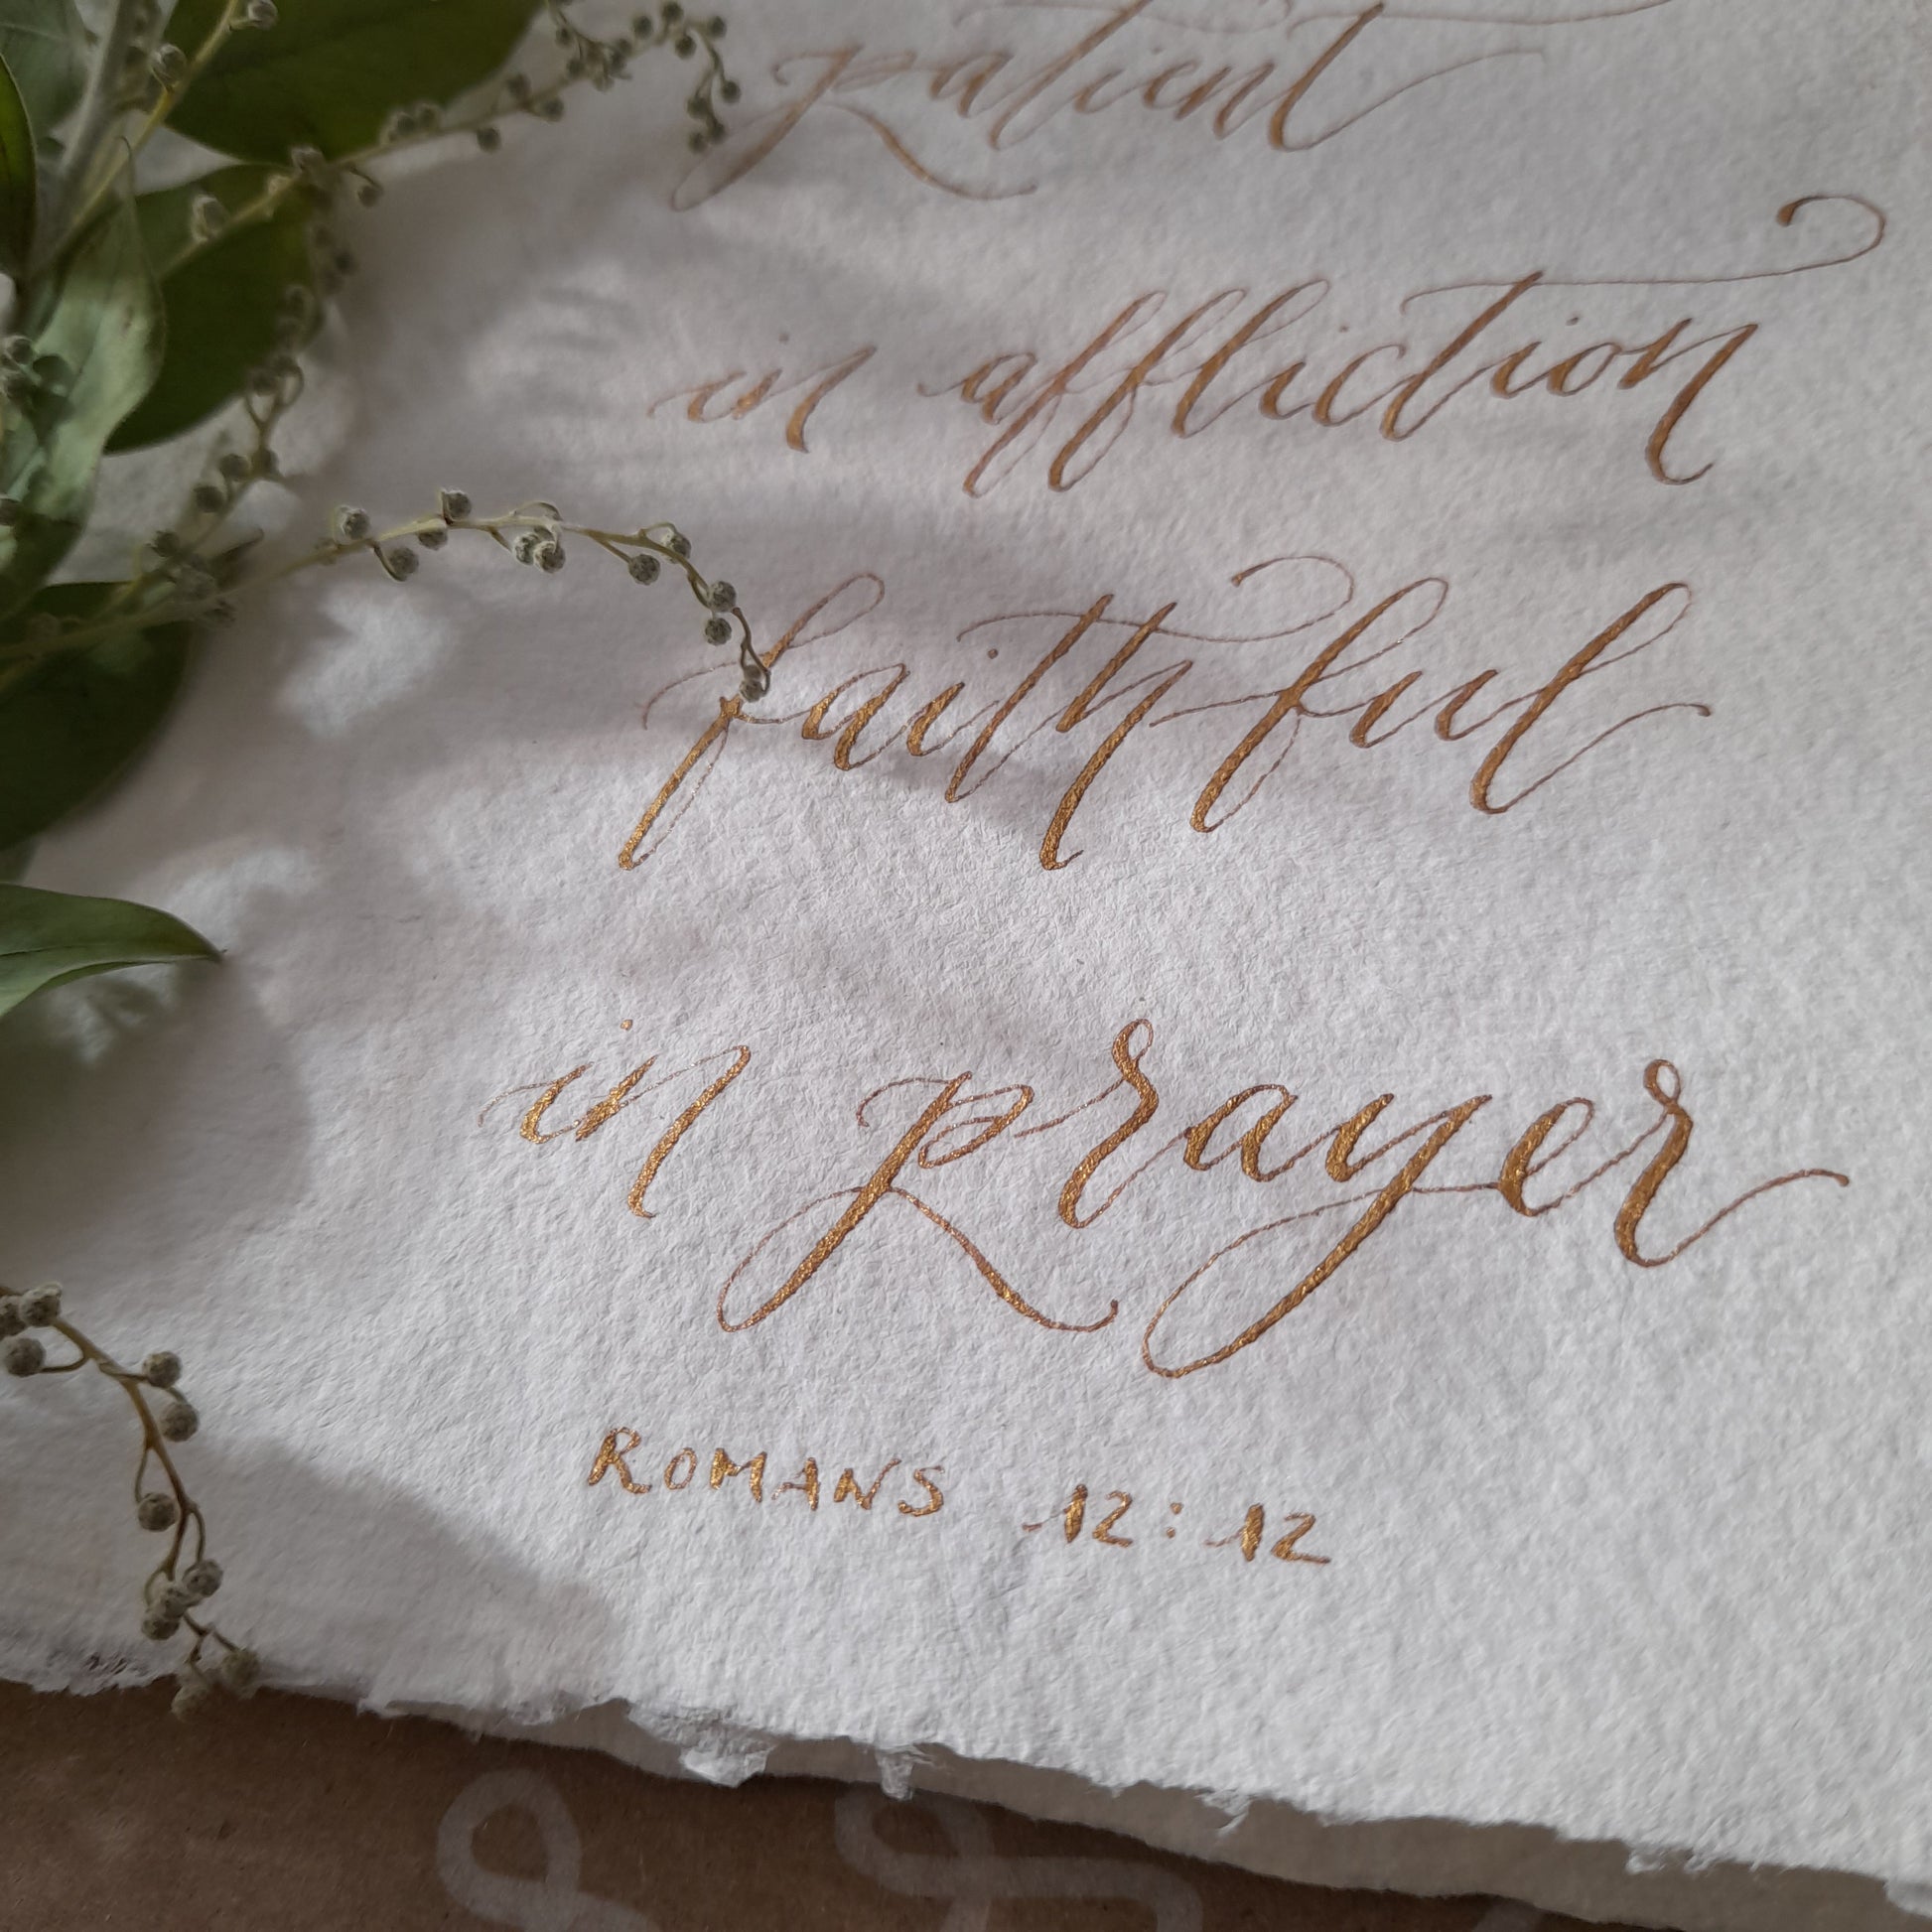 patient
in affliction
faithful
in prayer
ROMANS 12:12